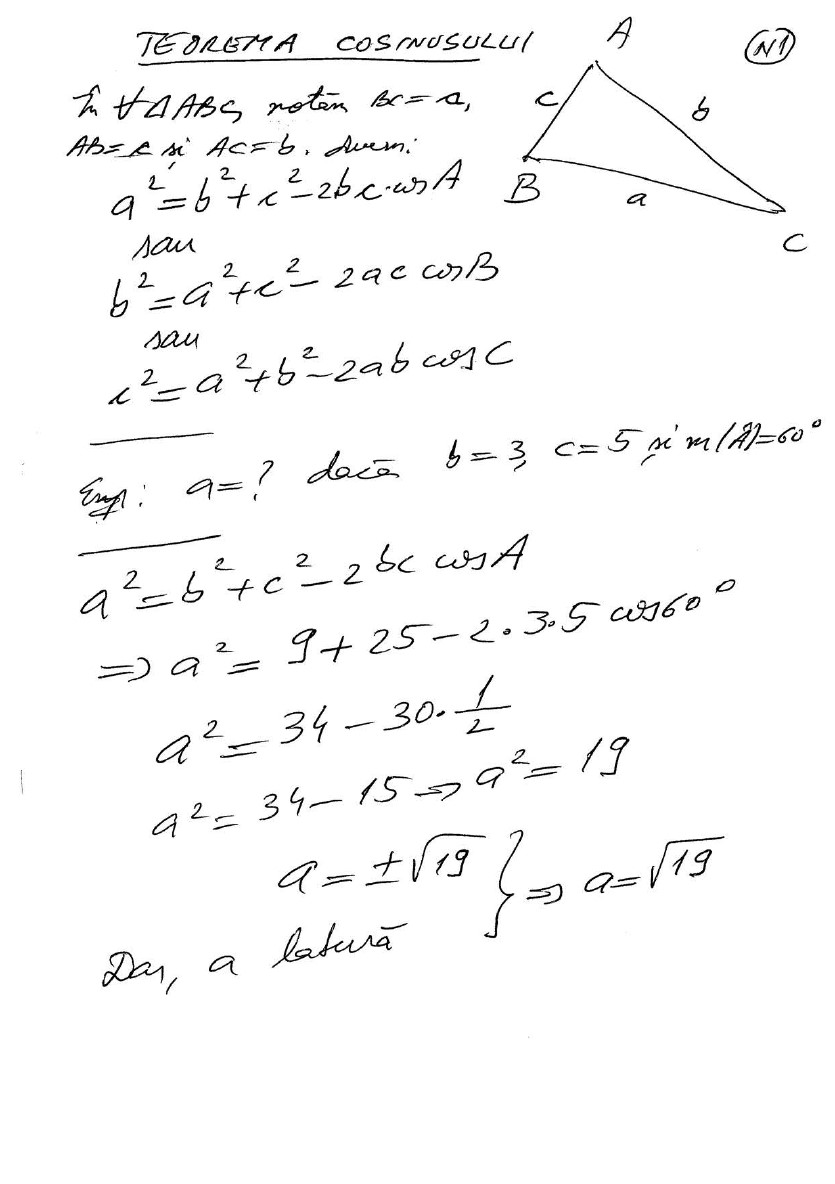 TEOREMA COSINUSULUI
N1
În ∀ΔABC, notăm BC=a,
AB=c și AC=b. Avem:
a²=b²+c²-2bc·cosA
sau
b²=a²+c²-2ac cosB
sau
c²=a²+b²-2ab cosC
A
c
b
B
a
C
Exp: a=? dacă b=3, c=5 și m(Â)=60°
a²=b²+c²-2bc cosA
=> a²= 9+25-2·3·5 cos60°
a²=34-30·1/2
a²=34-15 => a²=19
a=±√19 } => a=√19
Dar, a latură